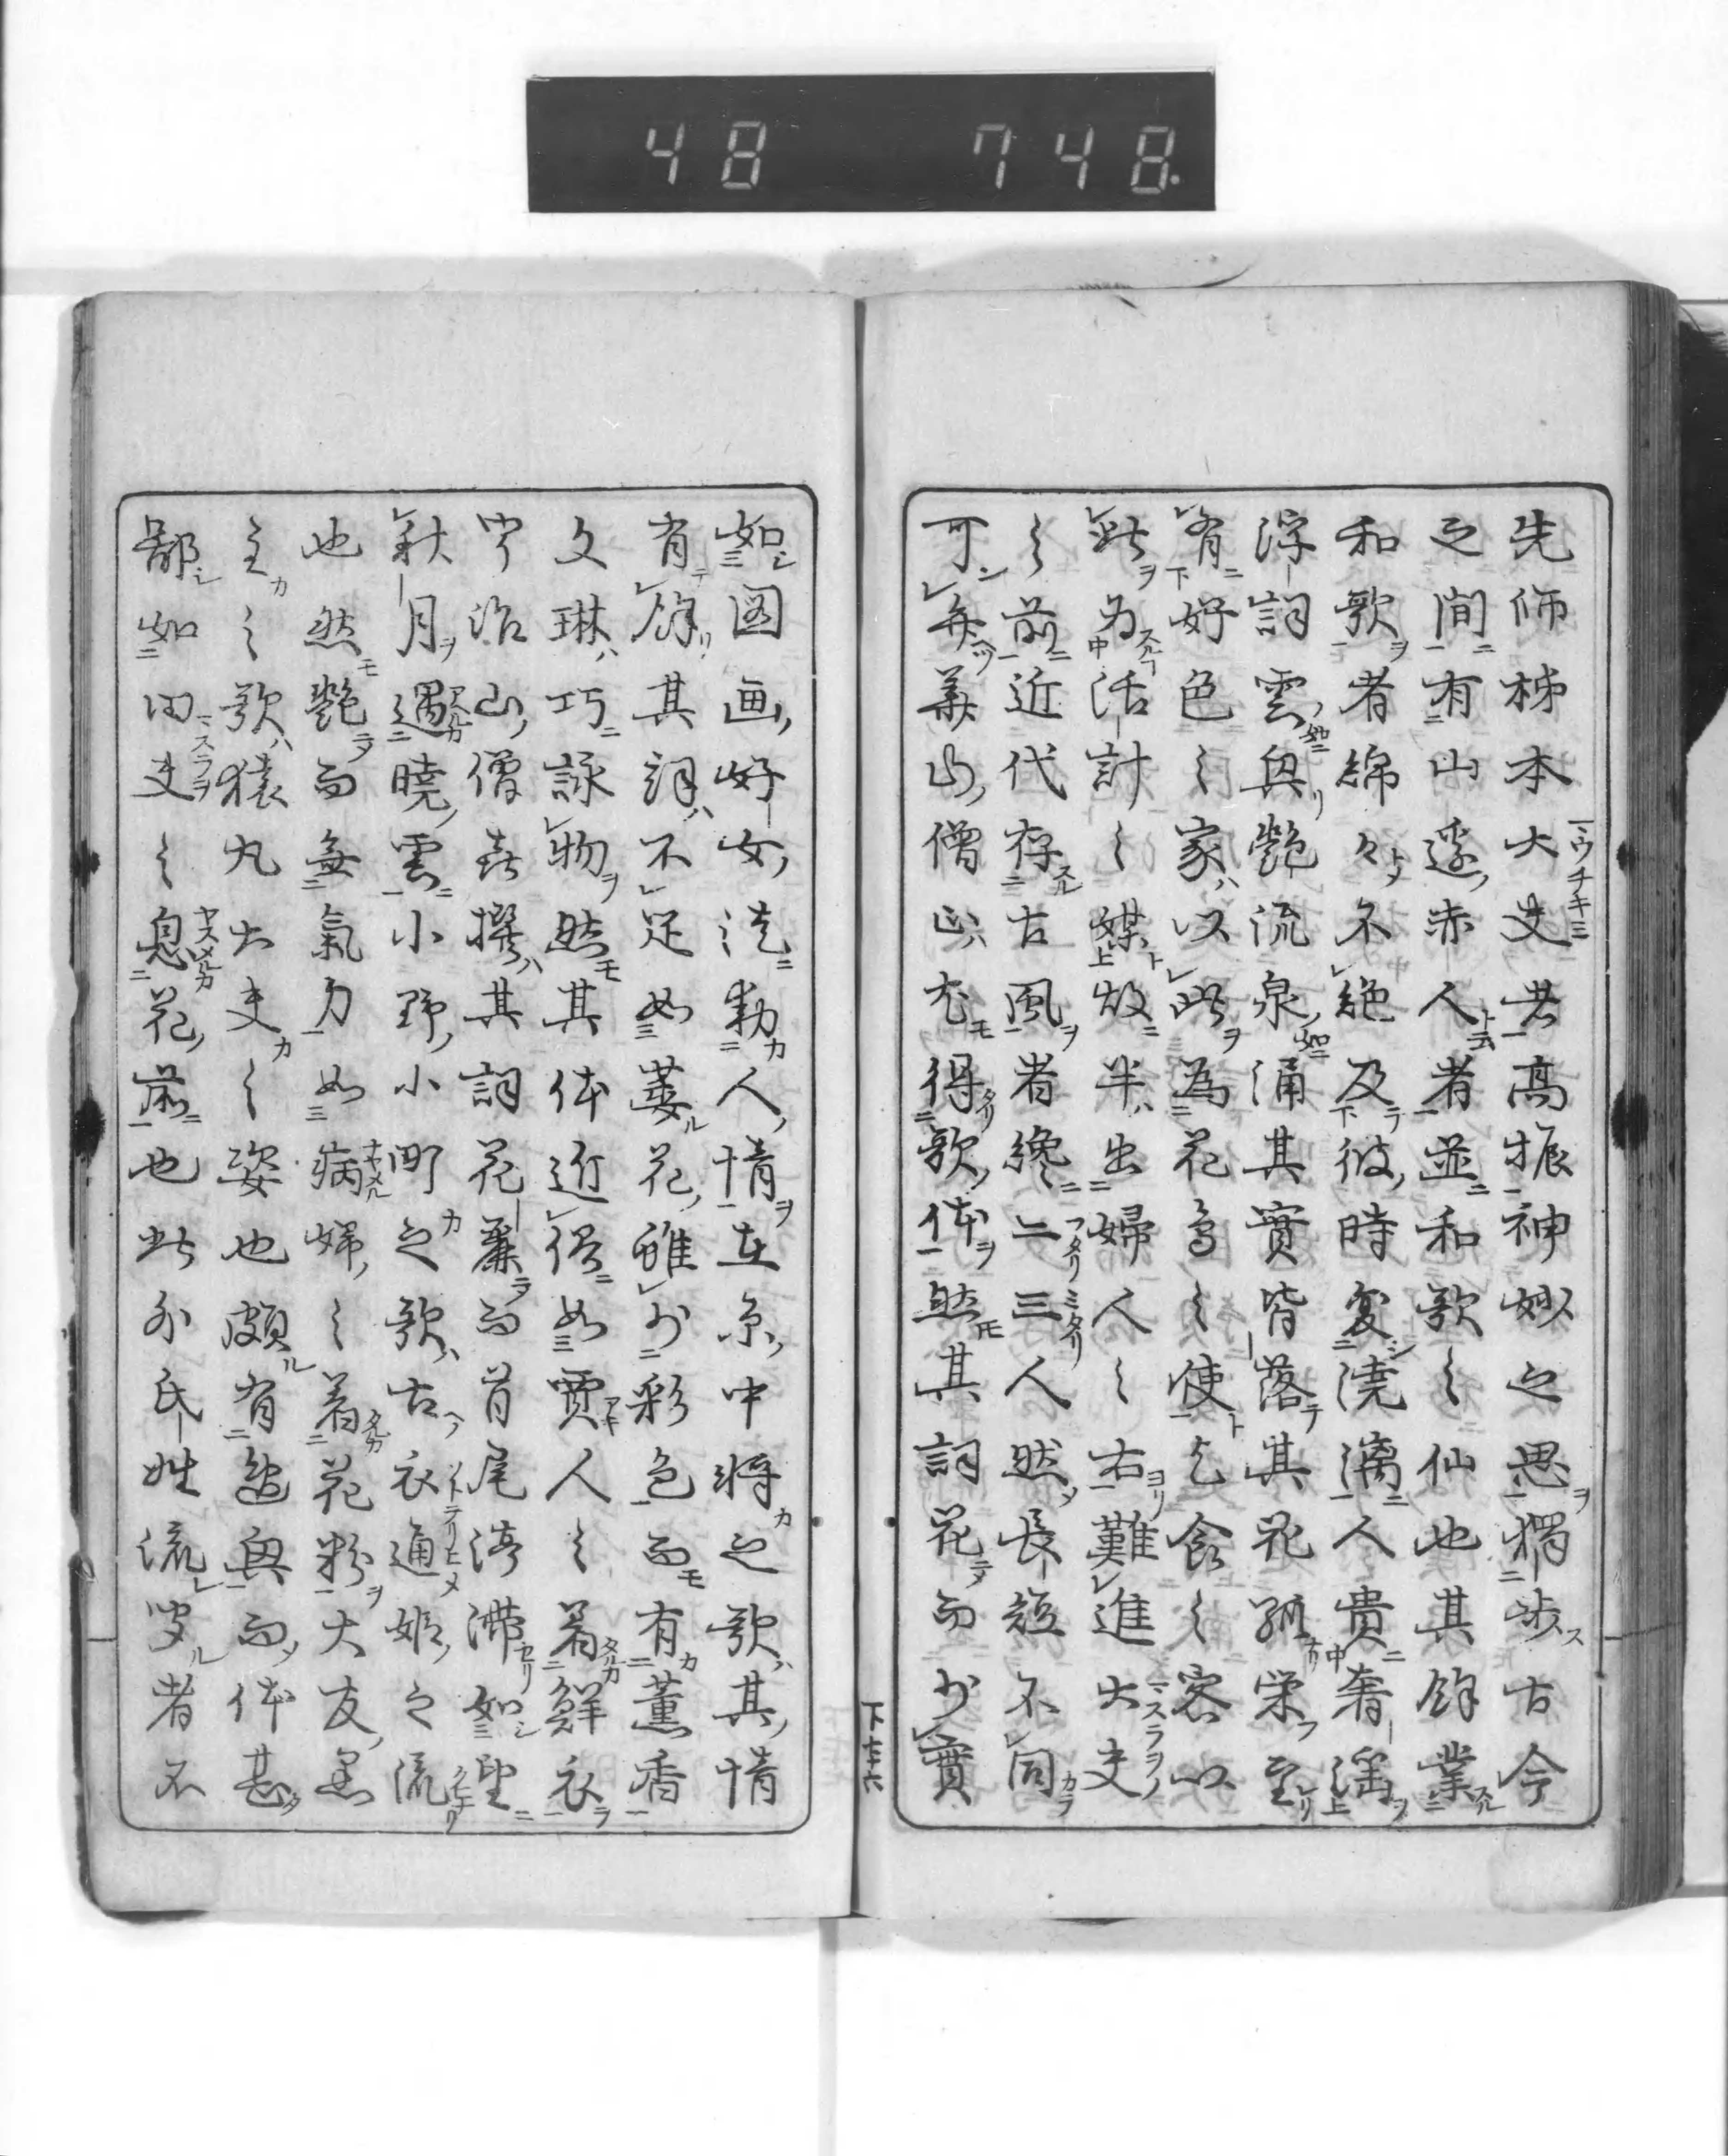 48 748.
先師柹本大夫者高振神妙之思獨步古今
之間有山邊赤人者並和歌之仙也其餘業
和歌者綿々不絶及彼時変澆漓人貴奢淫
浮詞雲興艶流泉涌其實皆落其花孤栄至
有好色之家以此為花鳥之使乞食之客以
此為活計之媒故半出婦人之右難進大夫
之前近代存古風者纔二三人然長短不同
可弁華山僧正尤得歌体然其詞花而少實
如図画好女徒動人情在原中将之歌其情
有餘其詞不足如萎花雖少彩色而有薫香
文琳巧詠物然其体近俗如賈人之着鮮衣
宇治山僧喜撰其詞花麗而首尾渟滞如望
秋月遇暁雲小野小町之歌古衣通姫之流
也然艶而無氣力如病婦之着花粉大友黒
主之歌猿丸大夫之姿也頗有逸興而体甚
鄙如田夫之息花前也此外氏姓流聞者不